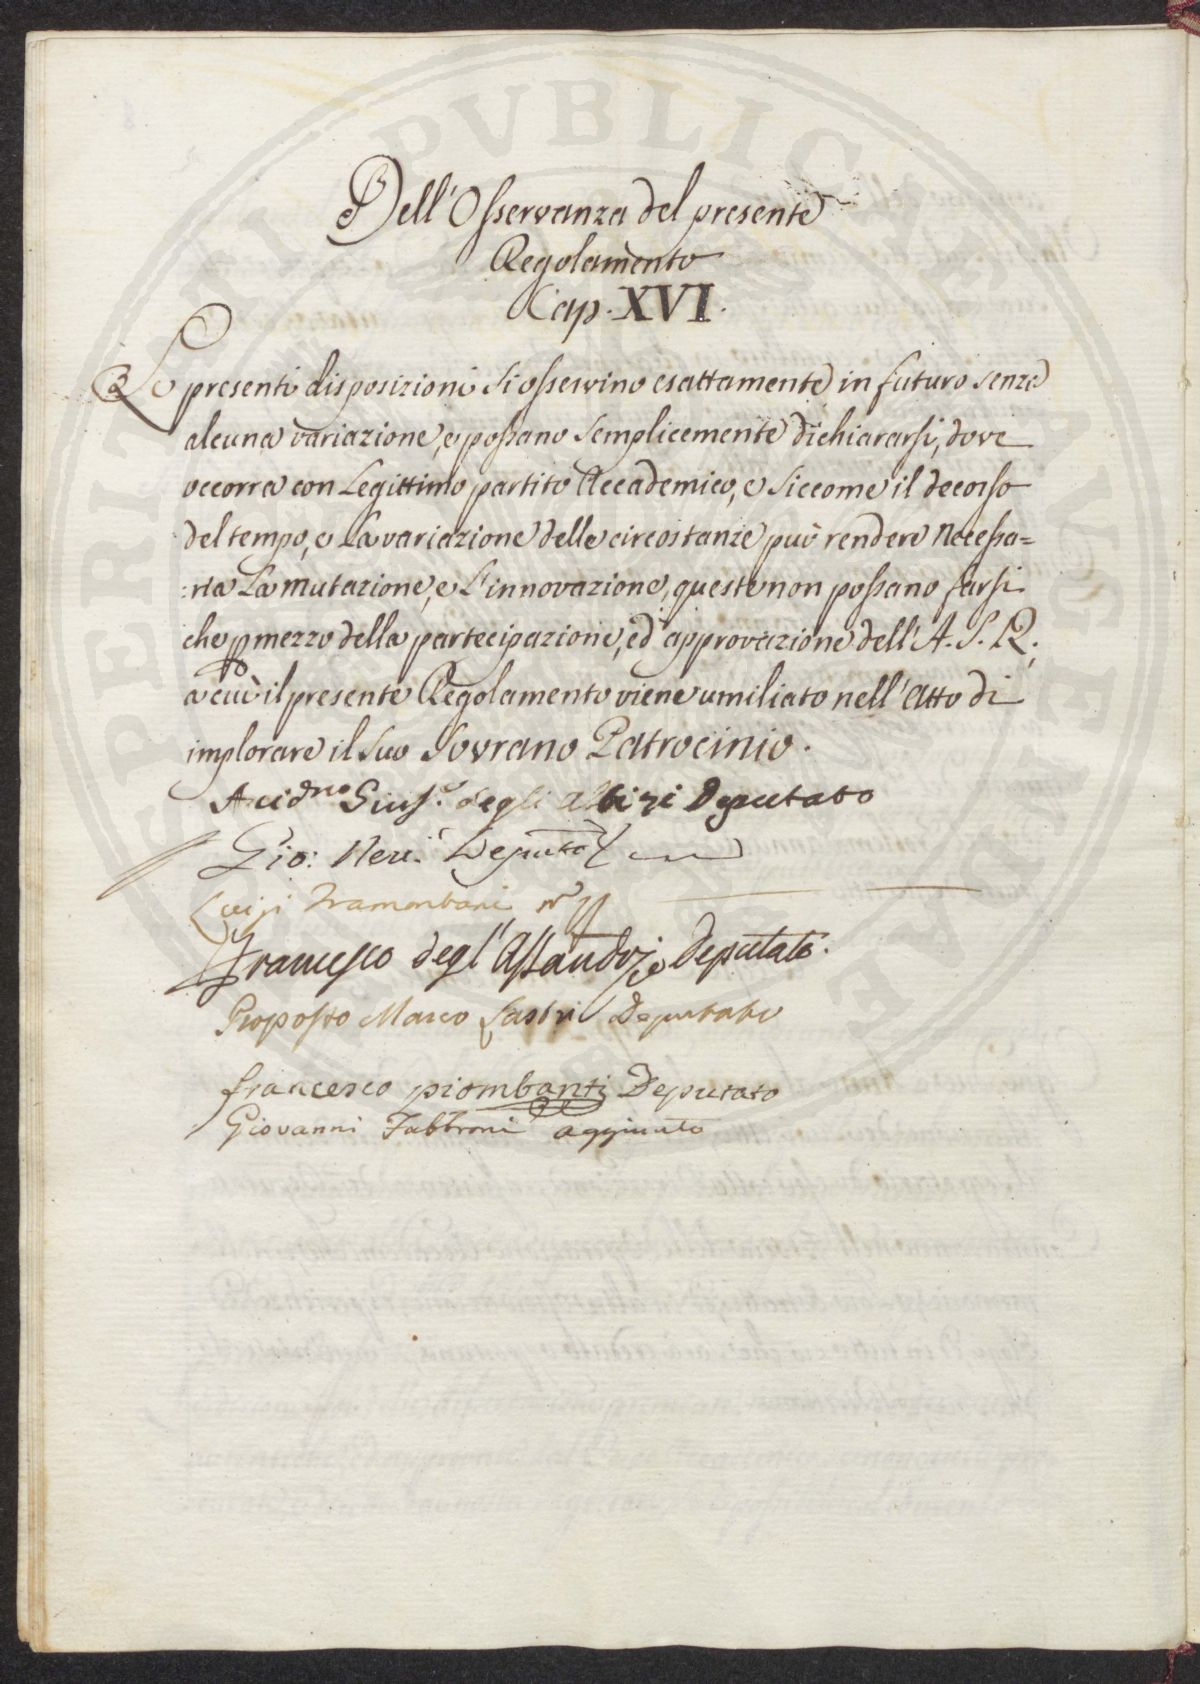 Dell'Osservanza del presente
Regolamento
Cap. XVI.
Le presenti disposizioni si osservino esattamente in futuro senza
alcuna variazione, e possano semplicemente dichiararsi, dove
occorra con Legittimo partito Accademico, e siccome il decorso
del tempo, e La variazione delle circostanze può rendere Necessa=
:ria La mutazione, e L'innovazione, queste non possano farsi
che p mezzo della partecipazione, ed approvazione dell'A. S. R.;
a cui il presente Regolamento viene umiliato nell'Atto di
implorare il suo Sovrano Patrocinio.
Arcid.no Gius.e degli Albizi Deputato
Gio: Neri Deputato
Luigi Tramontani
Francesco degl'Alessandri Deputato.
Proposto Marco Lastri Deputato
francesco piombanti Deputato
Giovanni Fabbroni aggiunto
PERITI PVBLICE